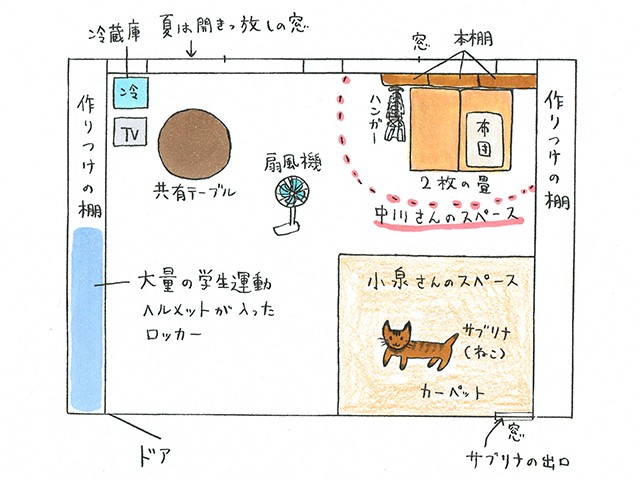 冷蔵庫
夏は開きっ放しの窓
窓
本棚
冷
TV
作りつけの棚
共有テーブル
扇風機
ハンガー
布団
2枚の畳
中川さんのスペース
作りつけの棚
大量の学生運動
ヘルメットが入った
ロッカー
小泉さんのスペース
サブリナ
(ねこ)
カーペット
ドア
窓
サブリナの出口